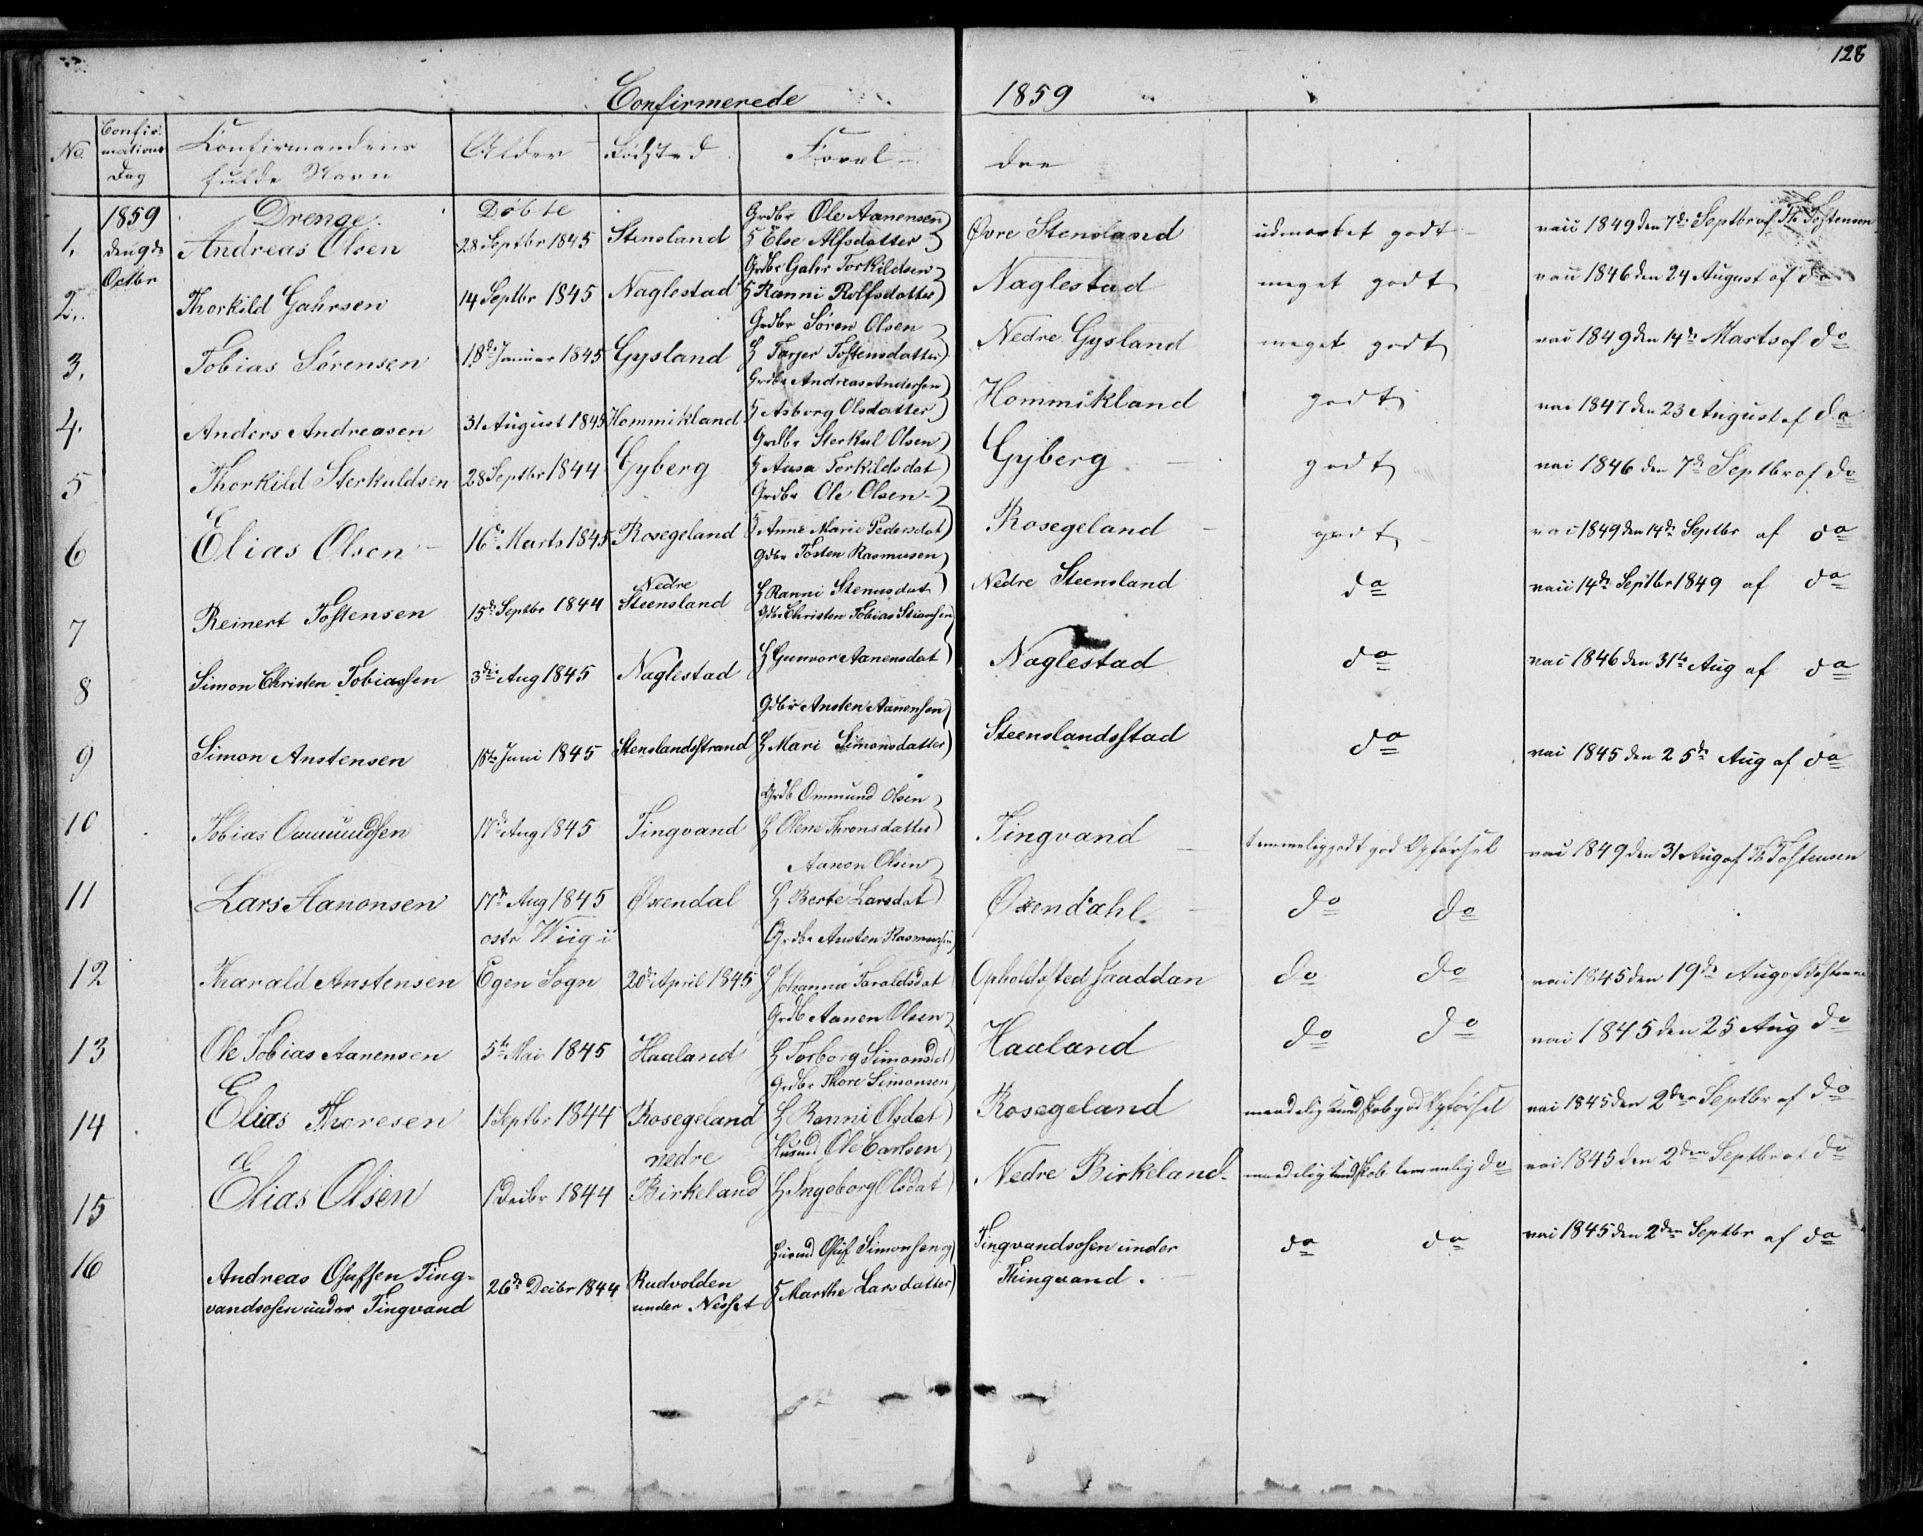 128
Confirmerede 1859
No. Confirmations Dag Konfirmandens fulde Navn Alder Fødsted Foræl- dre
1859 Drenge. Døbte Grdbr Ole Aanensen
1. den 9de Octbr Andreas Olsen 28 Septbr 1845 Stensland H Else Alfsdatter Øvre Stensland udmærket godt vac 1849 den 7de Septbr af Th Tostensen
Grdbr Gahr Torkildsen
2. Thorkild Gahrsen 14 Septbr 1845 Naglestad H Ranni Rolfsdatter Naglestad meget godt vac 1846 den 24 August af do
Grdbr Søren Olsen
3. Tobias Sørensen 18de Januar 1845 Gysland H Tarjer Tostensdatter Nedre Gysland meget godt vac 1849 den 14de Marts af do
Grdbr Andreas Andersen
4. Anders Andreasen 31 August 1845 Hommikland H Asborg Olsdatter Hommikland godt vac 1847 den 23 August af do
Grdbr Sterkul Olsen
5 Thorkild Sterkuldsen 28 Septbr 1844 Gyberg H Aasa Torkildsdat Gyberg godt vac 1846 den 7de Septbr af do
Grdbr Ole Olsen
6 Elias Olsen 16de Marts 1845 Rosegeland H Anne Marie Pedersdat Rosegeland godt vac 1849 den 14de Septbr af do
Gdbr Tosten Rasmusen
7 Reinert Tostensen 15de Septbr 1844 Nedre Steensland H Ranni Stenusdat Nedre Steensland do vac 14de Septbr 1849 af do
Gdbr Christen Tobias
8 Simon Christen Tobiassen 3die Aug 1845 Naglestad H Gunvor Aanensdat Naglestad do vac 1846 den 31te Aug af do
Gdbr Ansten Aanensen
9 Simon Anstensen 15de Juni 1845 Stenslandsstrand H Mari Simonsdatter Steenslandsstad do vac 1845 den 25de Aug af do
Grdb Ommund Olsen
10 Tobias Ommundsen 17de Aug 1845 Tingvand H Olene Thronsdatter Tingvand temmelig godt god Opførsel vac 1849 den 31 Aug af Th Tostensen
Aanon Olsen
11 Lars Aanonsen 17de Aug 1845 Øxendal H Berte Larsdat Øxendahl do do
ostr Wiig i Grdbr Ansten Rasmussen
12 Tharald Anstensen Egen Sogn 20de April 1845 H Johanna Taraldsdat Opholdssted Jaaddan do do vac 1845 den 19de Aug af Tostensen
Grdb Aanen Olsen
13 Ole Tobias Aanensen 5te Mai 1845 Haaland H Torborg Simonsdt Haaland do do vac 1845 den 25 Aug do
Grdbr Thore Simonsen
14 Elias Thoresen 1 Septbr 1844 Rosegeland H Ranni Olsdat Rosegeland maadelig Kundskab god Opførsel vac 1845 den 2den Septbr af do
Husmd Ole Carlsen
15 Elias Olsen 1 Decbr 1844 nedre Birkeland H Ingeborg Olsdat Nedre Birkeland maadelig Kundskab temmelig do vac 1845 den 2den Septbr af do
Husmd Oluf Simonsen og
16 Andreas Olufsen Ting- 26de Decbr 1844 Rudvolden H Marthe Larsdatter Tingvandsosen under do do vac 1845 den 2den Septbr af do
vandsosen under Tingvand under Nesset Thingvand.